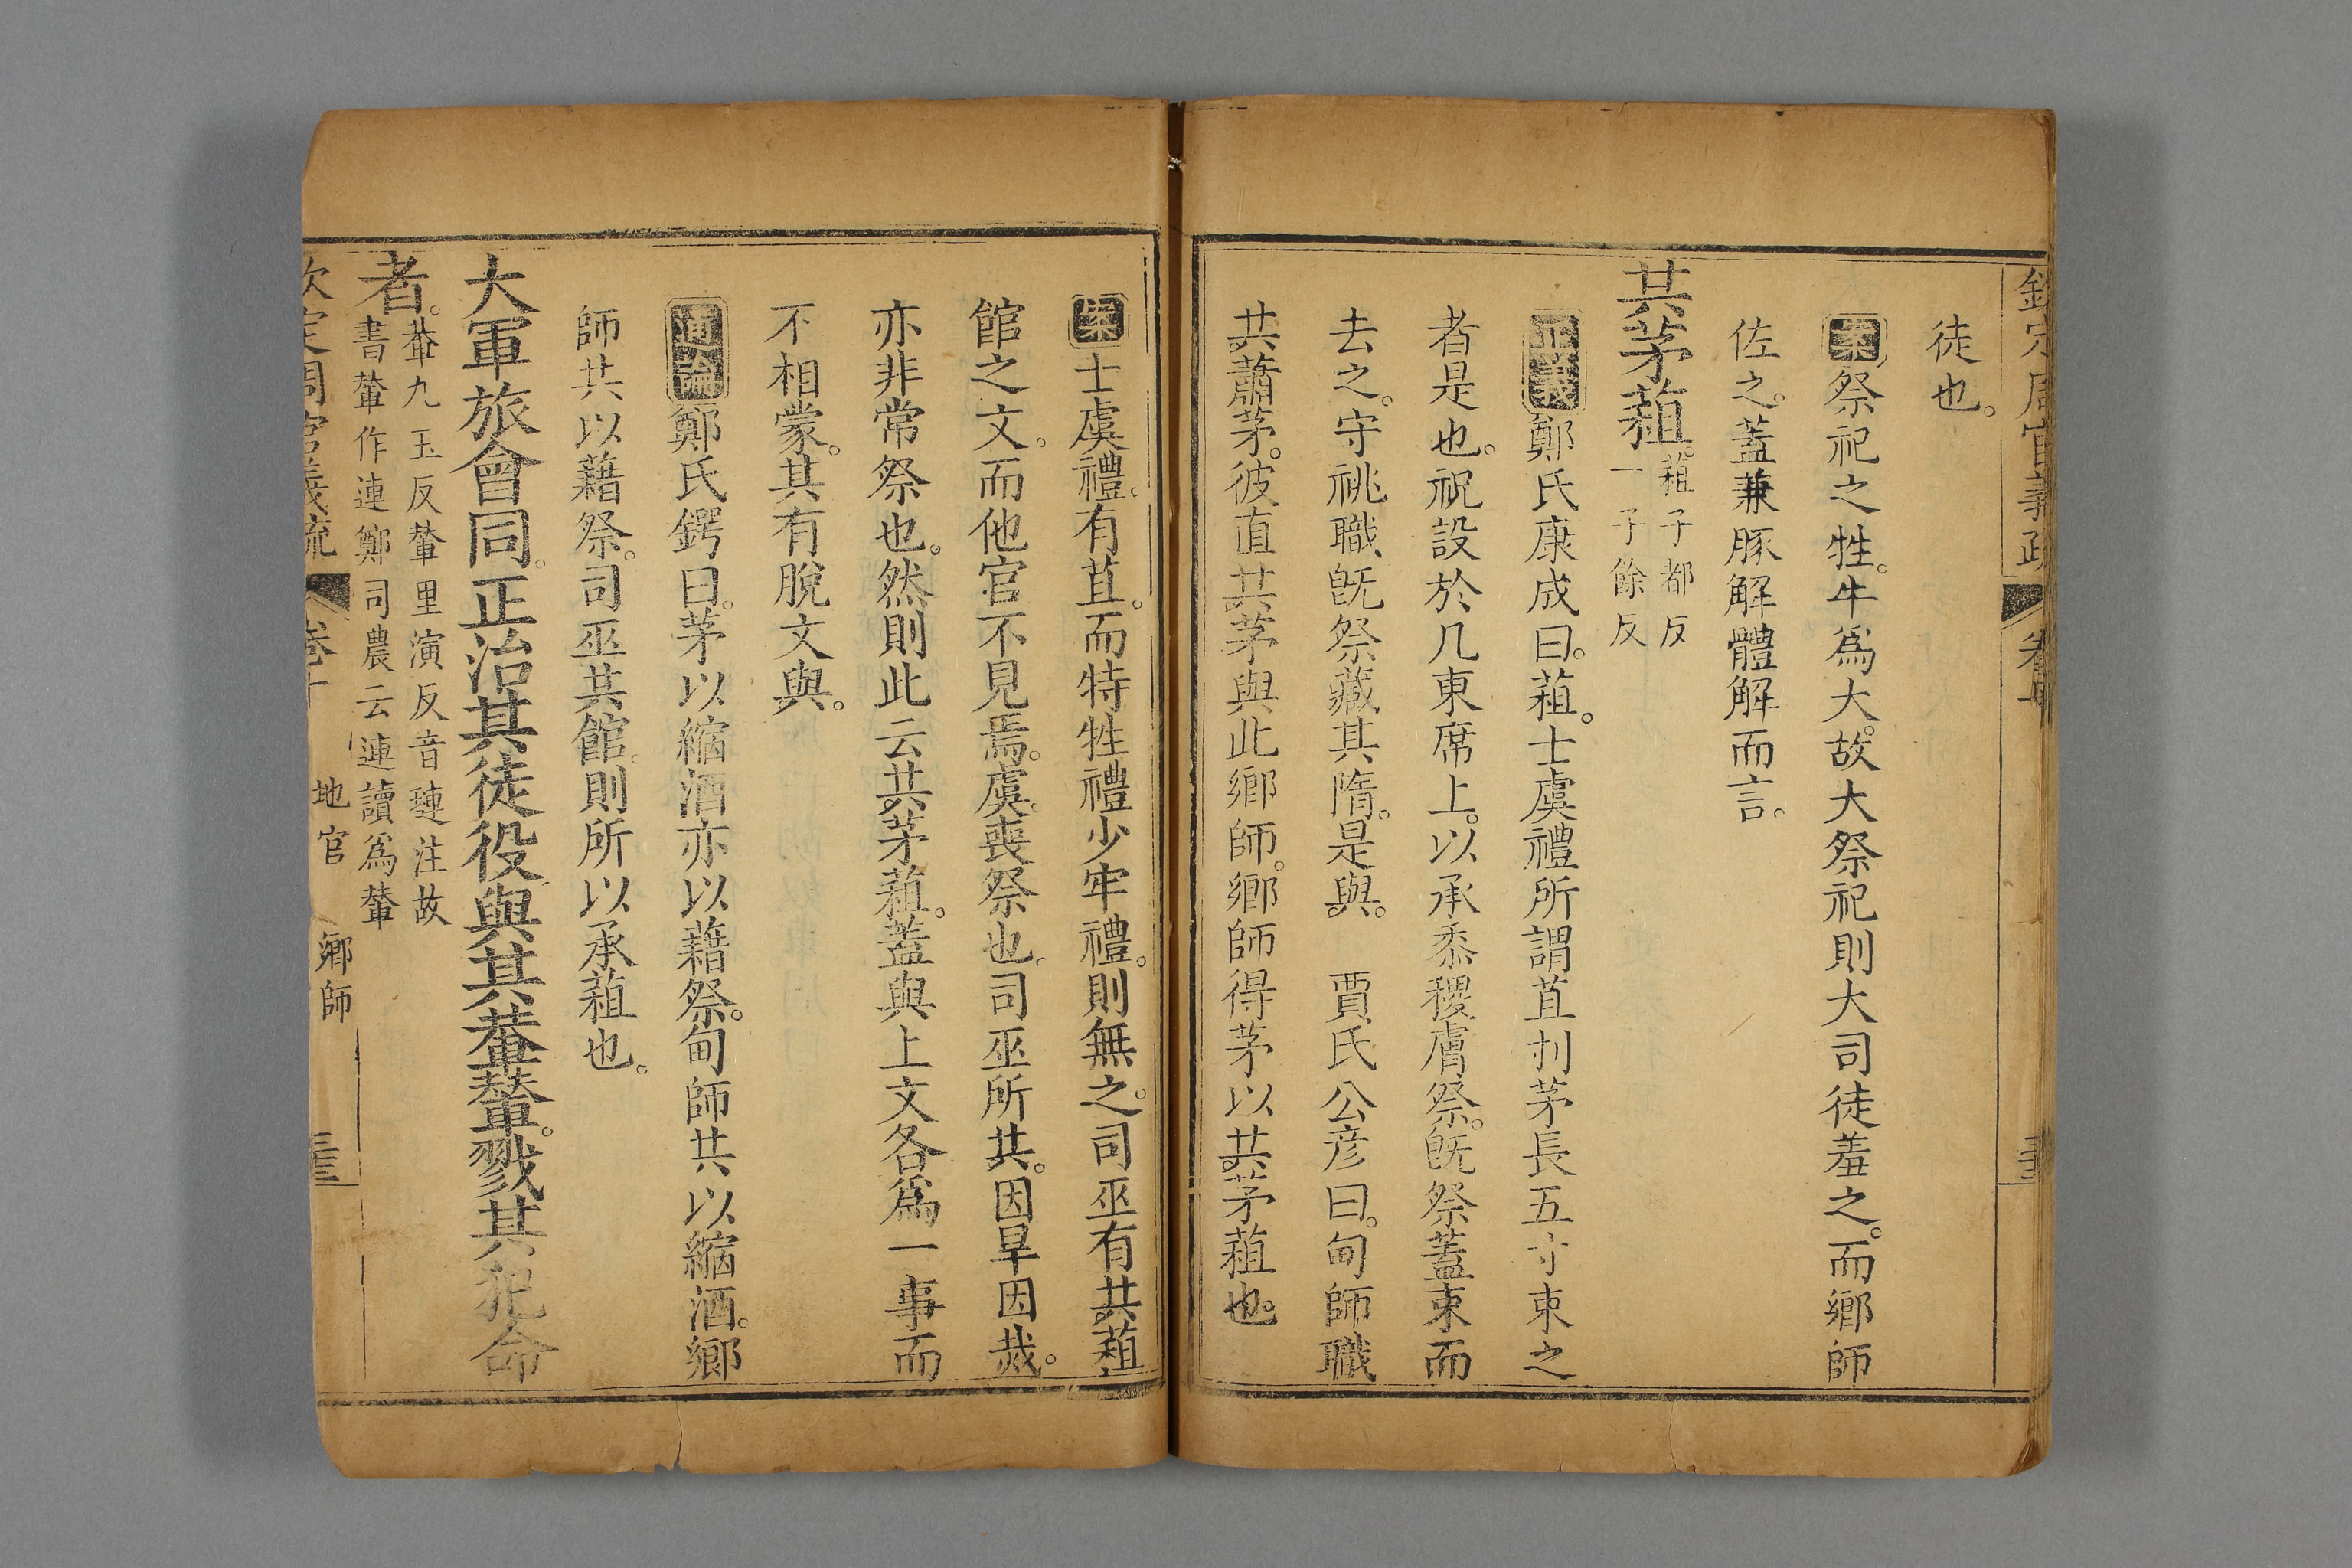 欽定周官義疏 卷十
徒也。
案祭祀之牲。牛爲大。故大祭祀則大司徒羞之。而鄉師
佐之。蓋兼豚解體解而言。
共茅蒩。蒩子都反
一子餘反
正義鄭氏康成曰。蒩。士虞禮所謂苴刌茅長五寸束之
者是也。祝設於几東席上。以承黍稷膚祭。旣祭蓋束而
去之。守祧職旣祭藏其隋。是與。 賈氏公彦曰。甸師職
共蕭茅。彼直共茅與此鄉師。鄉師得茅以共茅蒩也。
案士虞禮。有苴。而特牲禮少牢禮。則無之。司巫有共蒩
館之文。而他官不見焉。虞。喪祭也。司巫所共。因旱因烖。
亦非常祭也。然則此云共茅蒩。蓋與上文各爲一事而
不相蒙。其有脫文與。
通論鄭氏鍔曰。茅以縮酒亦以藉祭。甸師共以縮酒。鄉
師共以藉祭。司巫共館。則所以承蒩也。
大軍旅會同。正治其徒役與其輂輦。戮其犯命
者。輂九玉反輦里演反音璉注故
書輦作連鄭司農云連讀爲輦
欽定周官義疏 卷十 地官 鄉師